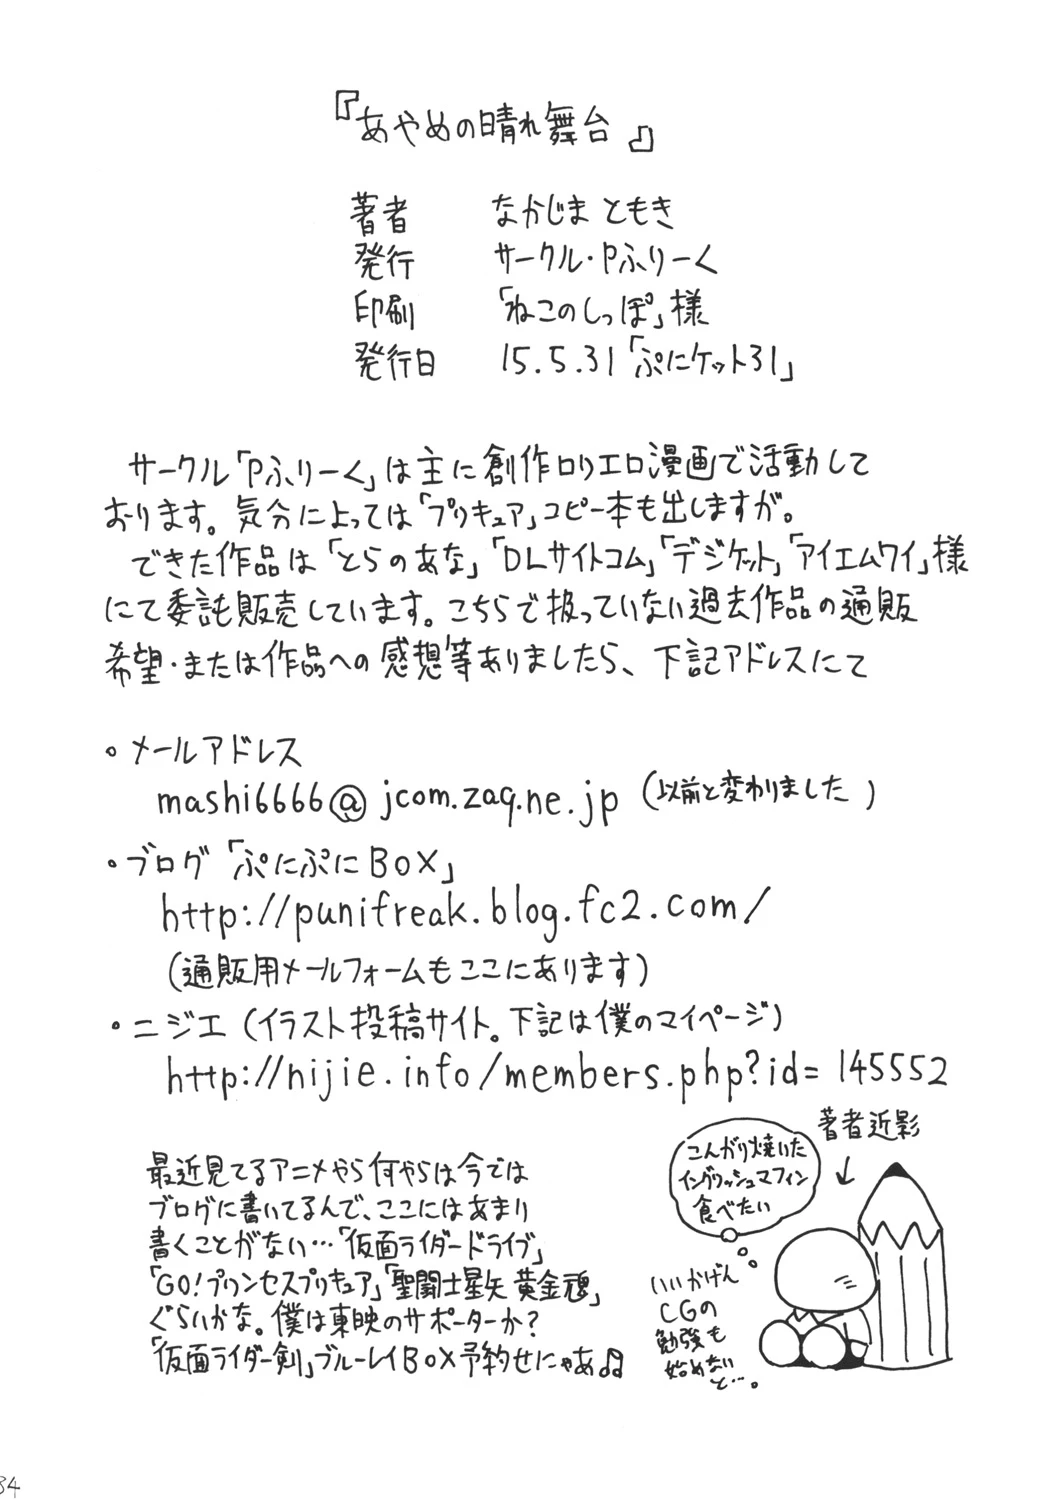 『あやめの晴れ舞台』
著者 なかじまともき
発行 サークル・Pふりーく
印刷 「ねこのしっぽ」様
発行日 15.5.31「ぷにケット31」
サークル「Pふりーく」は主に創作ロリエロ漫画で活動して
おります。気分によっては「プリキュア」コピー本も出しますが。
できた作品は「とらのあな」「DLサイトコム」「デジケット」「アイエムワイ」様
にて委託販売しています。こちらで扱っていない過去作品の通販
希望・または作品への感想等ありましたら、下記アドレスにて
・メールアドレス
mashi6666@jcom.zaq.ne.jp (以前と変わりました)
・ブログ「ぷにぷにBOX」
http://punifreak.blog.fc2.com/
(通販用メールフォームもここにあります)
・ニジエ(イラスト投稿サイト。下記は僕のマイページ)
http://nijie.info/members.php?id=145552
最近見てるアニメやら何やらは今では
ブログに書いてるんで、ここにはあまり
書くことがない…「仮面ライダードライブ」
「GO!プリンセスプリキュア」「聖闘士星矢 黄金魂」
ぐらいかな。僕は東映のサポーターか?
「仮面ライダー剣」ブルーレイBOX予約せにゃあ♫
著者近影
こんがり焼いた
イングリッシュマフィン
食べたい
いいかげん
CGの
勉強も
始めない
と…。
34